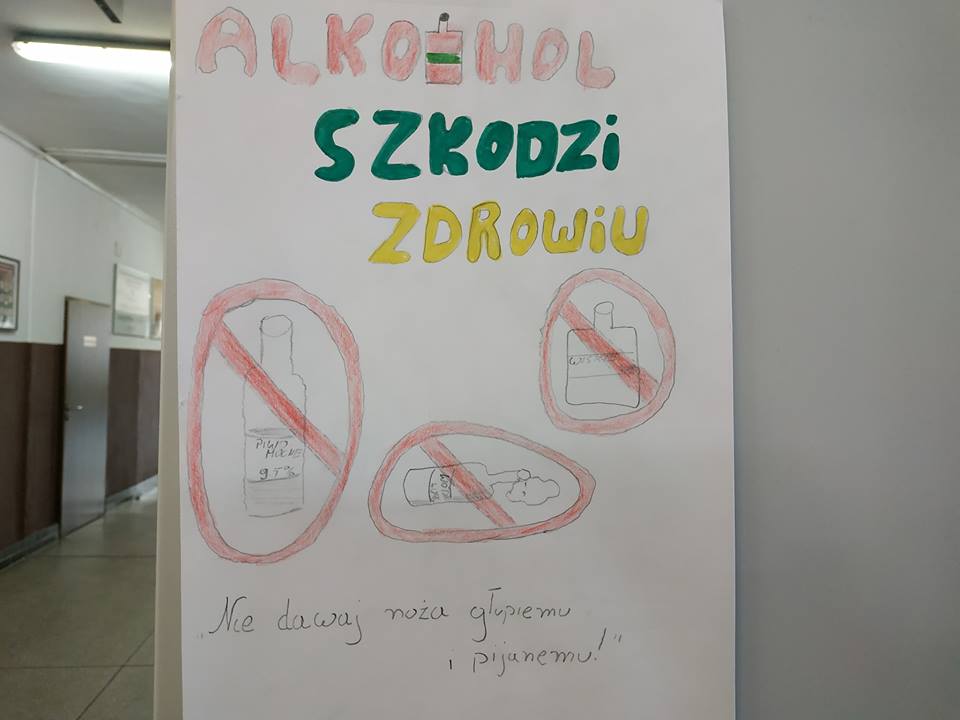 ALKOHOL
SZKODZI
ZDROWIU
PIWO
MOCNE
9.5%
„Nie dawaj noża głupiemu
i pijanemu!"